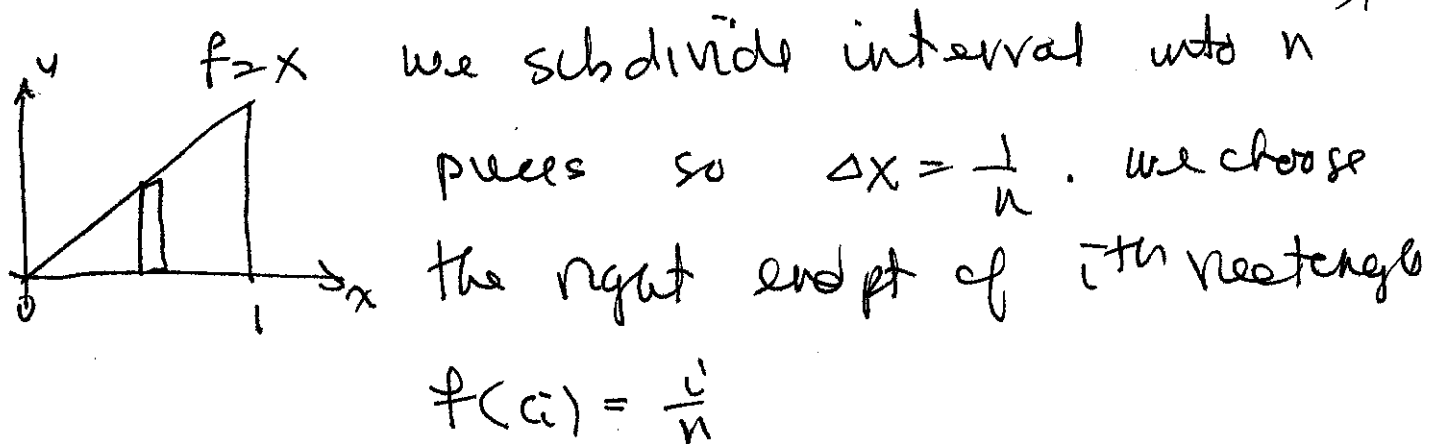 y f=x we subdivide interval into n
pieces so Δx = 1/n . we choose
the right endpt of ith rectangle
0 1 x
f(ci) = i/n